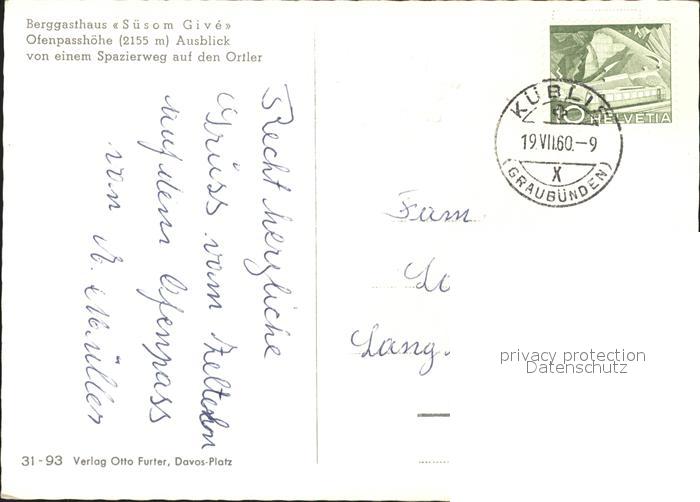 Berggasthaus «Süsom Givé»
Ofenpasshöhe (2155 m) Ausblick
von einem Spazierweg auf den Ortler
Recht herzliche
Grüss vom
auf dem Ofenpass
von A. Müller
31-93 Verlag Otto Furter, Davos-Platz
10 HELVETIA
KÜBLIS
19.VII.60.-9
X
(GRAUBÜNDEN)
Fam
Lang.
privacy protection
Datenschutz